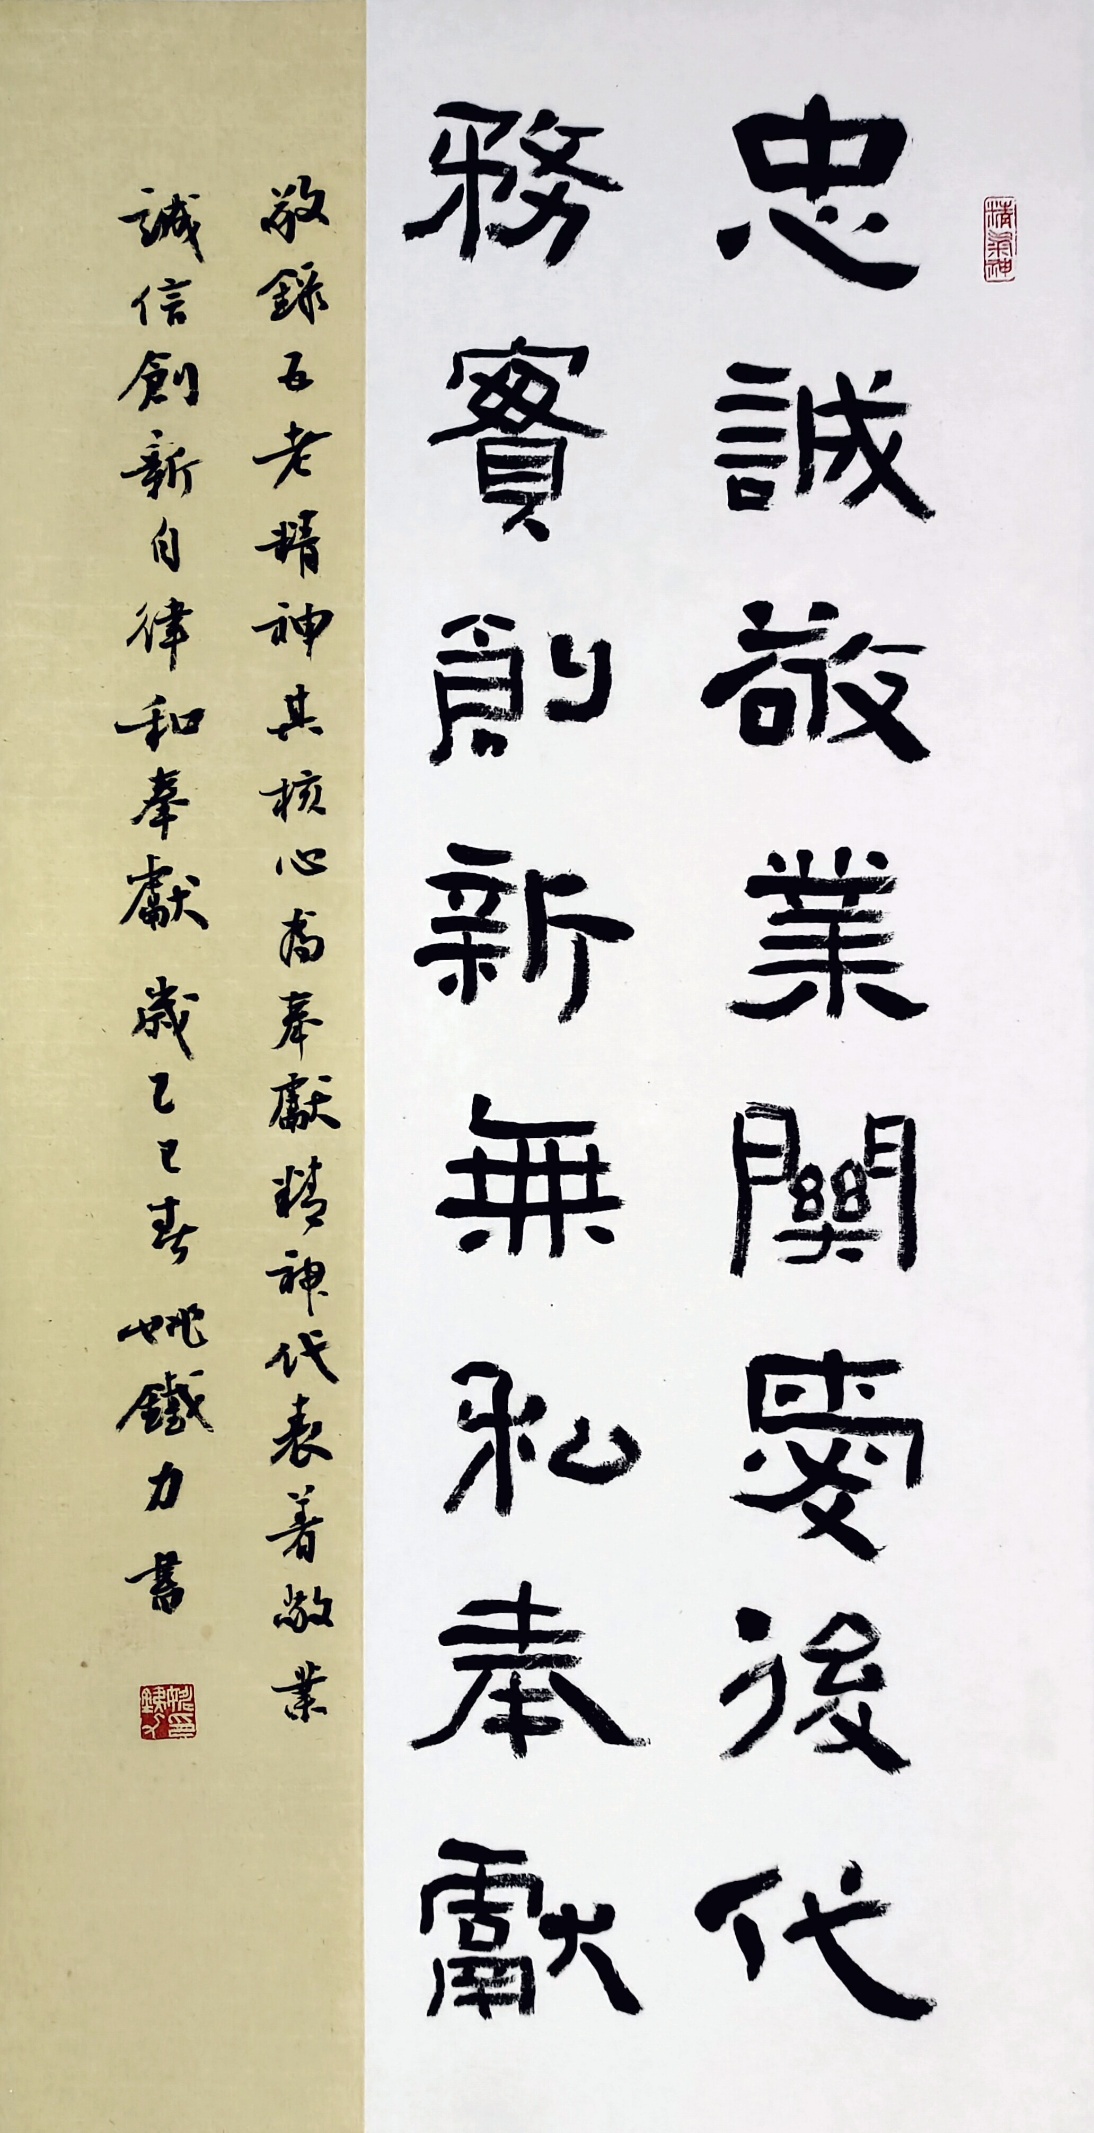 精氣神
忠誠敬業關愛後代
務實創新無私奉獻
敬錄五老精神其核心爲奉獻精神代表着敬業
誠信創新自律和奉獻 歲乙巳春 姚鐵力書